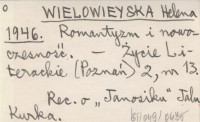 o
WIELOWIEYSKA Helena
1946. Romantyzm i nowo-
czesność. - Życie Li-
terackie (Poznań) 2, nr 13.
Rec. o „Janosiku" Jalu
Kurka.